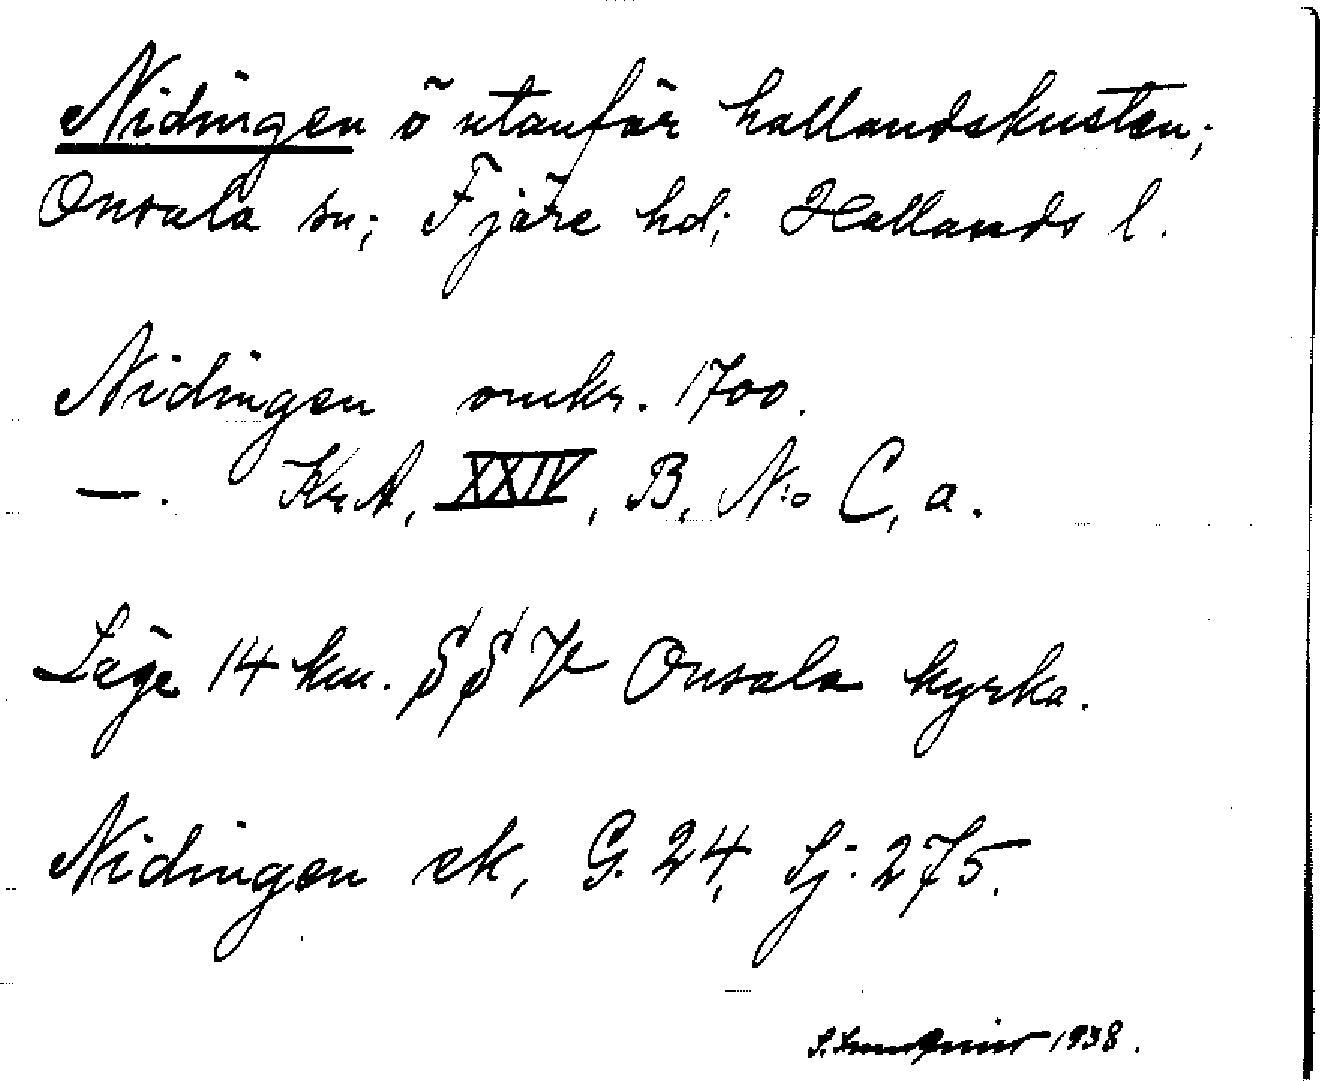 Nidingen ö utanför hallandskusten;
Onsala sn; Fjäre hd; Hallands l.
Nidingen omkr. 1700.
—. Kr.A, XXIV, B, N:o C, a.
Läge 14 km. SSV Onsala kyrka.
Nidingen ek, G. 24, Sj. 275.
1938.